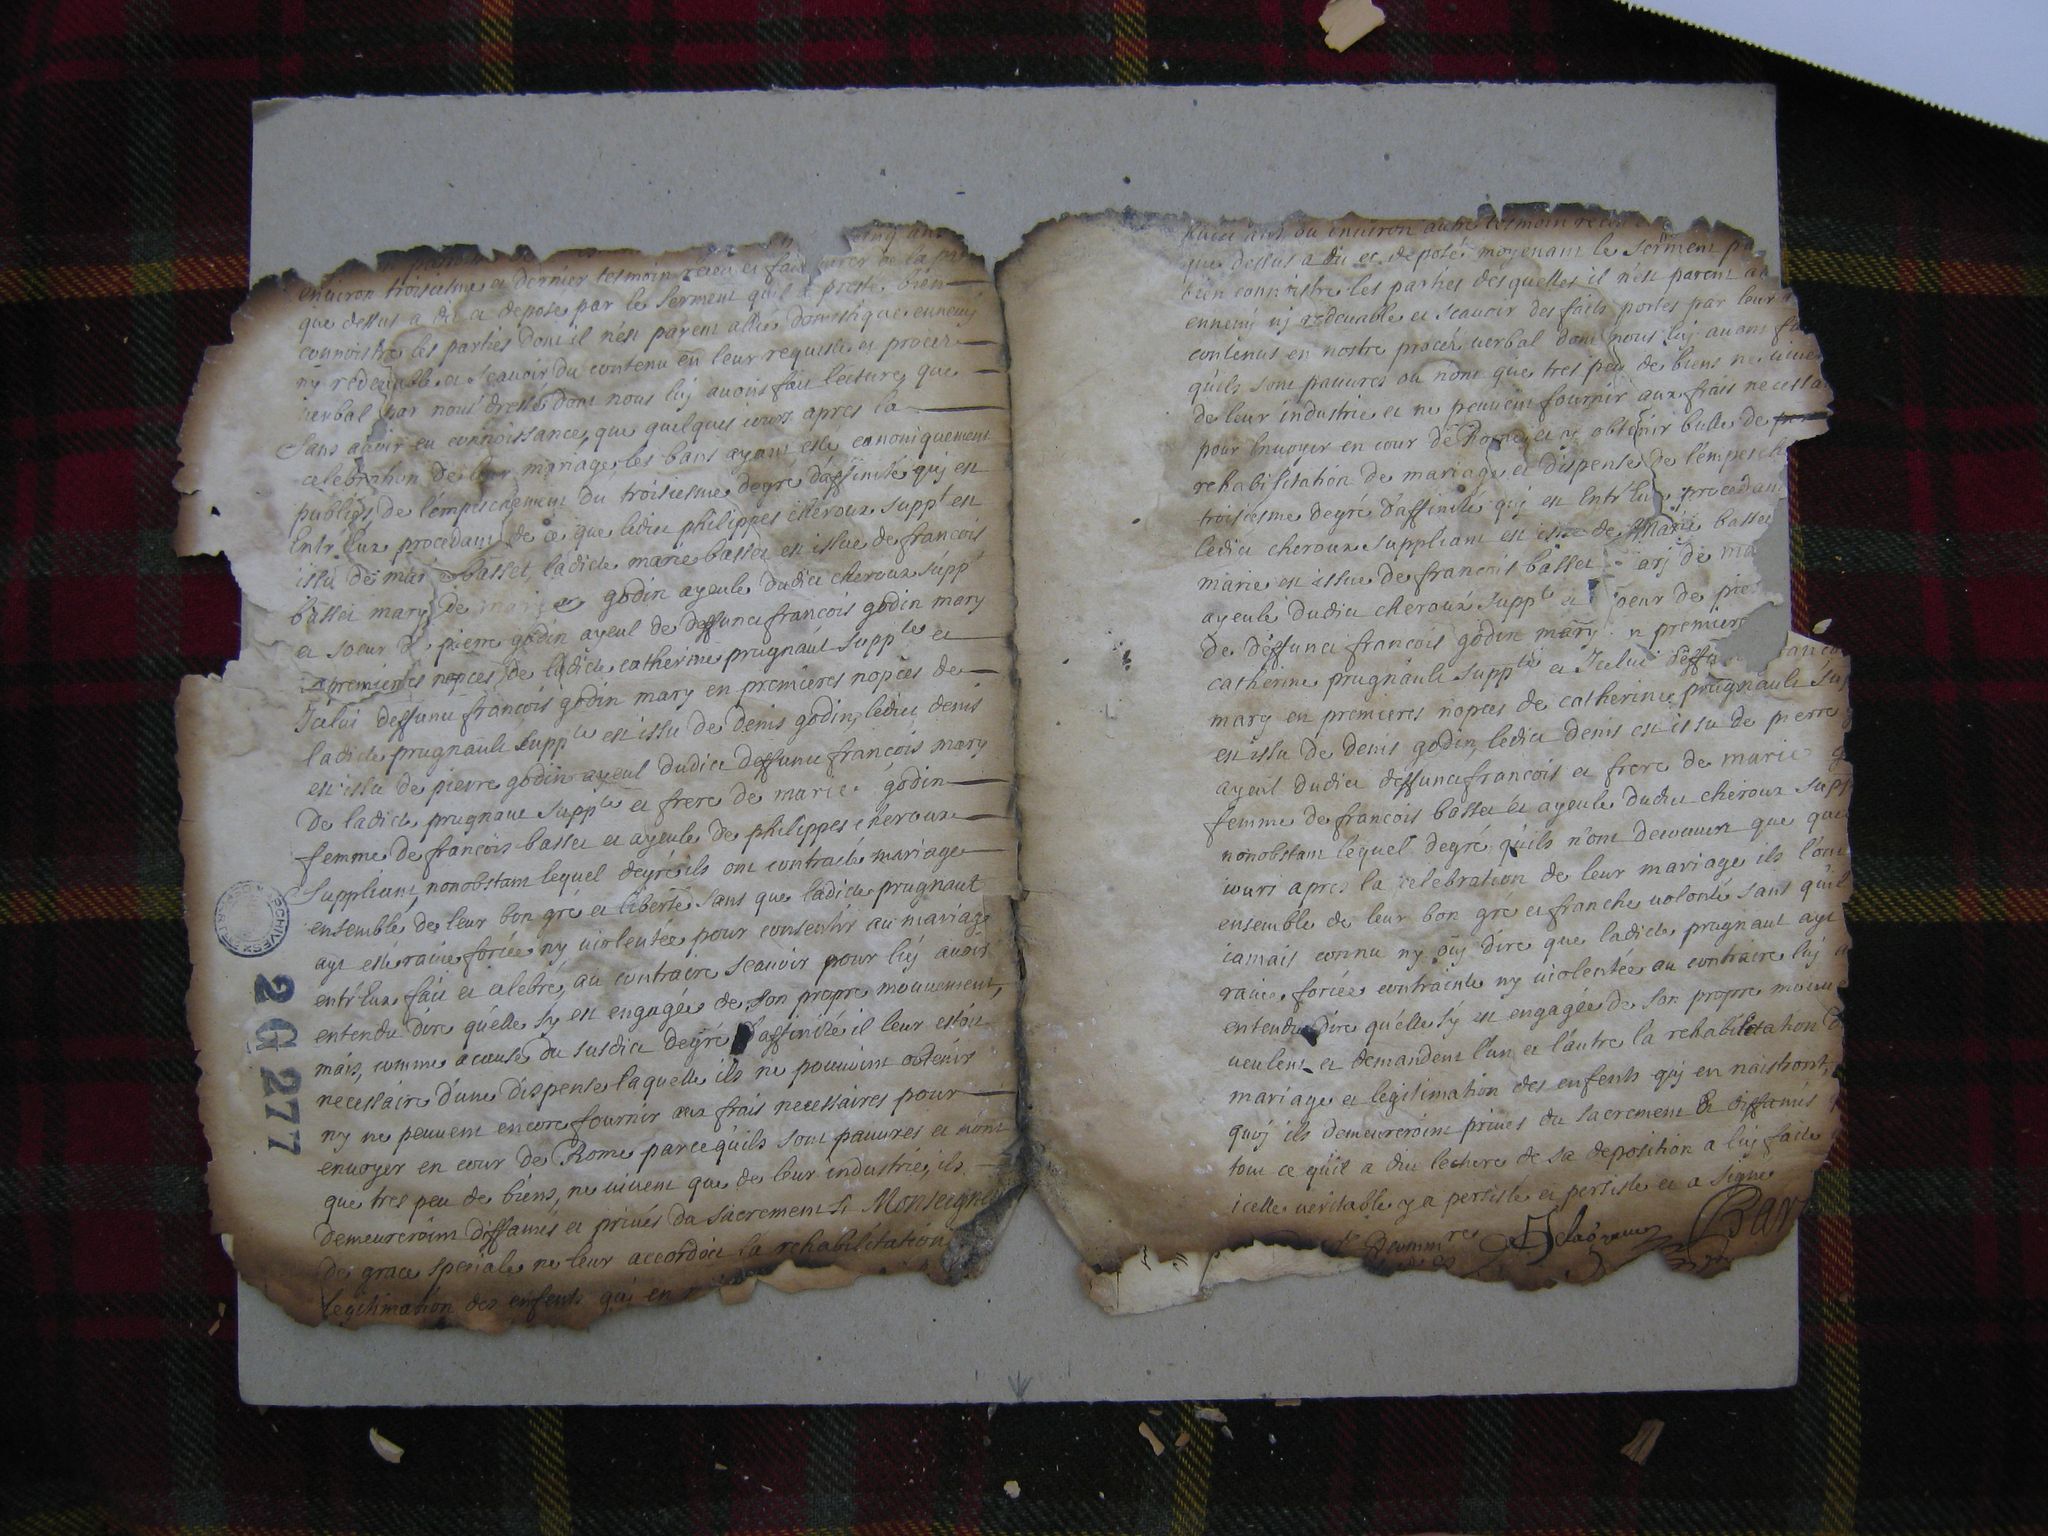 cinq ans
environ troisiesme et dernier tesmoin receu et fait jurer de la
que dessus a dit et deposé par le serment qu'il a presté bien
connoistre les parties dont il n'est parent allié domestique ennemy
ny redevable et scavoir du contenu en leur requeste et procez
verbal par nous dressé dont nous luy avons fait lecture, que
sans avoir eu connoissance, que quelques iours apres la
celebration de leur mariage, les bans ayant esté canoniquement
publiés, de l'empeschement du troisiesme degré d'affinité quj est
entr'eux procedant de ce que ledict philippes cheroux suppt est
issu de marie basset, ladicte marie basset est issue de francois
basset mary de marie godin ayeule dudict cheroux suppt
et soeur de pierre godin ayeul de deffunct francois godin mary
en premieres nopces de ladicte catherine prugnault suppte et
Icelui deffunct francois godin mary en premieres nopces de
ladicte prugnault suppte est issu de denis godin, ledict denis
est issu de pierre godin ayeul dudict deffunct francois mary
de ladicte prugnaut suppte et frere de marie godin
femme de francois basset et ayeule de philippes cheroux
suppliant, nonobstant lequel degré ils ont contracté mariage
ensemble de leur bon gré et liberté sans que ladicte prugnaut
ayt esté ravie forcée ny violentée pour consentir au mariage
entr'eux fait et celebré, au contraire scavoir pour luy avoir
entendu dire qu'elle s'y est engagée de son propre mouvement,
mais, comme a cause du susdict degré d'affinité il leur estoit
necessaire d'une dispense laquelle ils ne pouvoint obtenir
ny ne peuvent encore fournir aux frais necessaires pour
envoyer en cour de Rome parcequ'ils sont pauvres et n'ont
que tres peu de biens, ne vivent que de leur industrie, ils
demeureroint diffamés et privés du sacrement si Monseigne
de grace speciale ne leur accordoit la rehabilitation
legitimation des enfents quj en
ARCHIVES
2 G 277
ans ou environ autre tesmoin receu
que dessus a dit et deposé moyenant le serment
bien connoistre les parties desquelles il n'est parent
ennemy nj redevable et scavoir des faits portes par leur
contenus en nostre procez verbal dont nous luj avons
qu'ils sont pauvres ou n'ont que tres peu de biens ne
de leur industrie et ne peuvent fournir aux frais
pour envoyer en cour de Rome et y obtenir bulle de
rehabilitation de mariage et dispense de
troisiesme degré d'affinité quj est entr'eux procedant
ledict cheroux suppliant est issu de Marie basset
marie est issue de francois basset marj de
ayeule dudict cheroux suppt et soeur de
de deffunct francois godin mary en premiere
catherine prugnault suppte et Icelui
mary en premieres nopces de catherine prugnault
est issu de denis godin, ledict denis est issu de pierre
ayeul dudict deffunct francois et frere de marie
femme de francois basset et ayeule dudict cheroux
nonobstant lequel degré qu'ils n'ont decouvert que
iours apres la celebration de leur mariage ils
ensemble de leur bon gré et franche volonté sans
iamais connu ny ouj dire que ladicte prugnaut ayt
ravie, forcée contrainte ny violentée au contraire luj
entendu dire qu'elle s'y est engagée de son propre
veulent et demandent l'un et l'autre la rehabilitation
mariage et legitimation des enfents quj en naistront,
quoj ils demeureroint privés du sacrement et diffamés
tout ce qu'il a dit lecture de sa deposition a luj faite
icelle veritable y a persisté et persiste et a signé